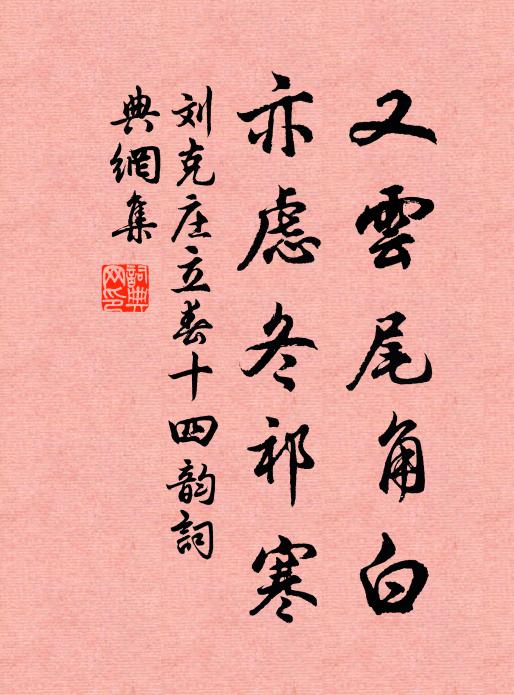 又雲尾角白
亦慮冬祁寒
刘克庄立春十四韵詞
典網集
詞典網印